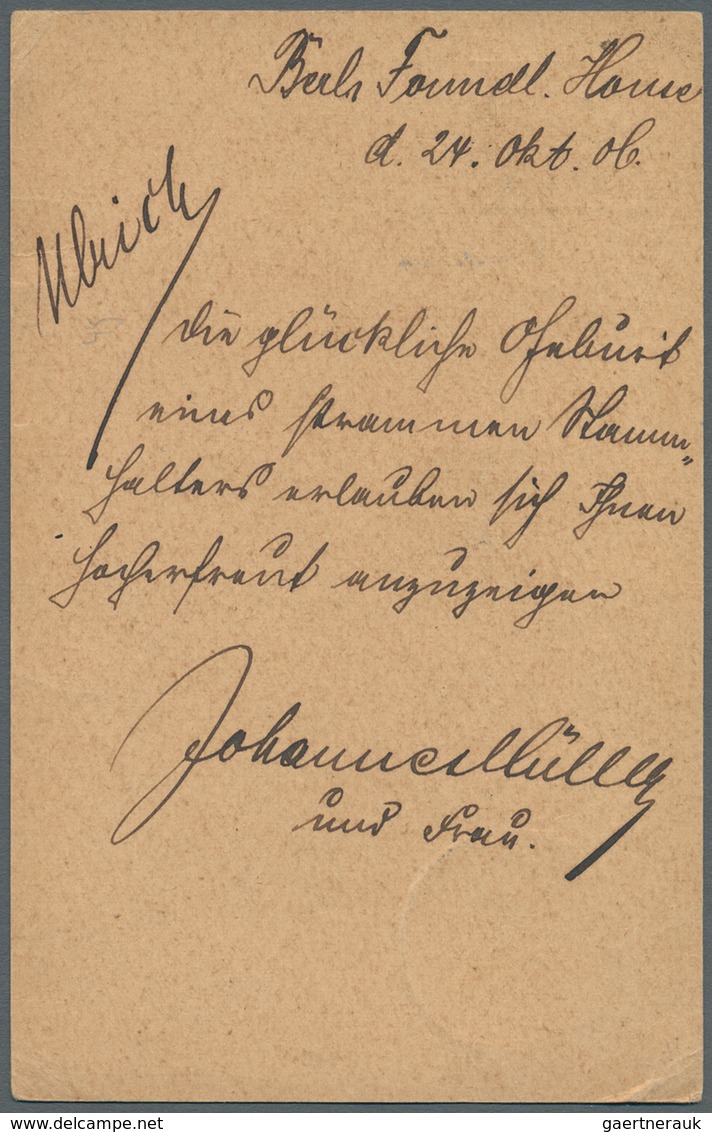 Berls Foundl. House
d. 24. Okt. 06.
Ulrich
Die glückliche Geburt
eines strammen Stamm„
halters erlauben sich Ihnen
hocherfreut anzuzeigen
Johannes Müller
und Frau.
© www.delcampe.net
gaertnerauk